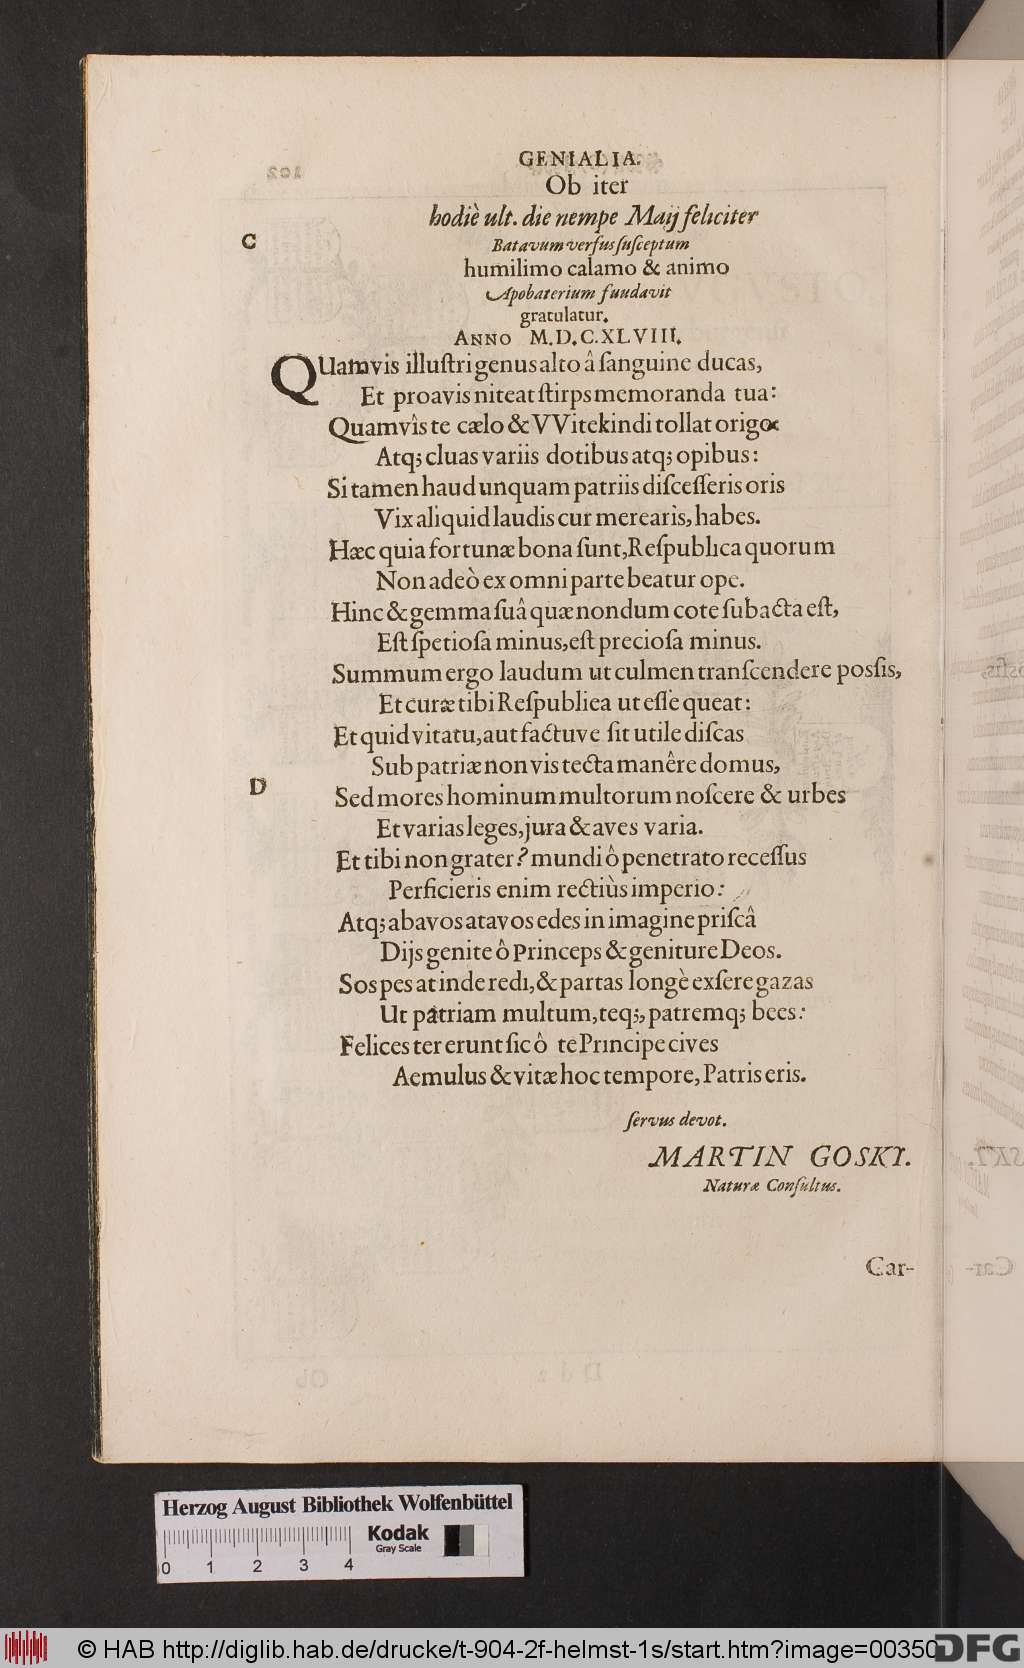 GENIALIA.
Ob iter
hodiè ult. die nempe Maij feliciter
C
Batavum versus susceptum
humilimo calamo & animo
Apobaterium fuudavit
gratulatur.
ANNO M.D.C.XLVIII.
QUamvis illustri genus alto â sanguine ducas,
Et proavis niteat stirps memoranda tua:
Quamvîs te cælo & VVitekindi tollat origo
Atq; cluas variis dotibus atq; opibus:
Si tamen haud unquam patriis discesseris oris
Vix aliquid laudis cur merearis, habes.
Hæc quia fortunæ bona sunt, Respublica quorum
Non adeò ex omni parte beatur ope.
Hinc & gemma suâ quæ nondum cote subacta est,
Est spetiosa minus, est preciosa minus.
Summum ergo laudum ut culmen transcendere possis,
Et curæ tibi Respubliea ut esse queat:
Et quid vitatu, aut factuve sit utile discas
Sub patriæ non vis tecta manêre domus,
D
Sed mores hominum multorum noscere & urbes
Et varias leges, jura & aves varia.
Et tibi non grater? mundi ô penetrato recessus
Perficieris enim rectiùs imperio:
Atq; abavos atavos edes in imagine priscâ
Dijs genite ô Princeps & geniture Deos.
Sospes at inde redi, & partas longè exsere gazas
Ut patriam multum, teq;, patremq; bees:
Felices ter erunt sic ô te Principe cives
Aemulus & vitæ hoc tempore, Patris eris.
servus devot.
MARTIN GOSKY.
Naturæ Consultus.
Car-
Herzog August Bibliothek Wolfenbüttel
Kodak
Gray Scale
0 1 2 3 4
© HAB http://diglib.hab.de/drucke/t-904-2f-helmst-1s/start.htm?image=00350
DFG